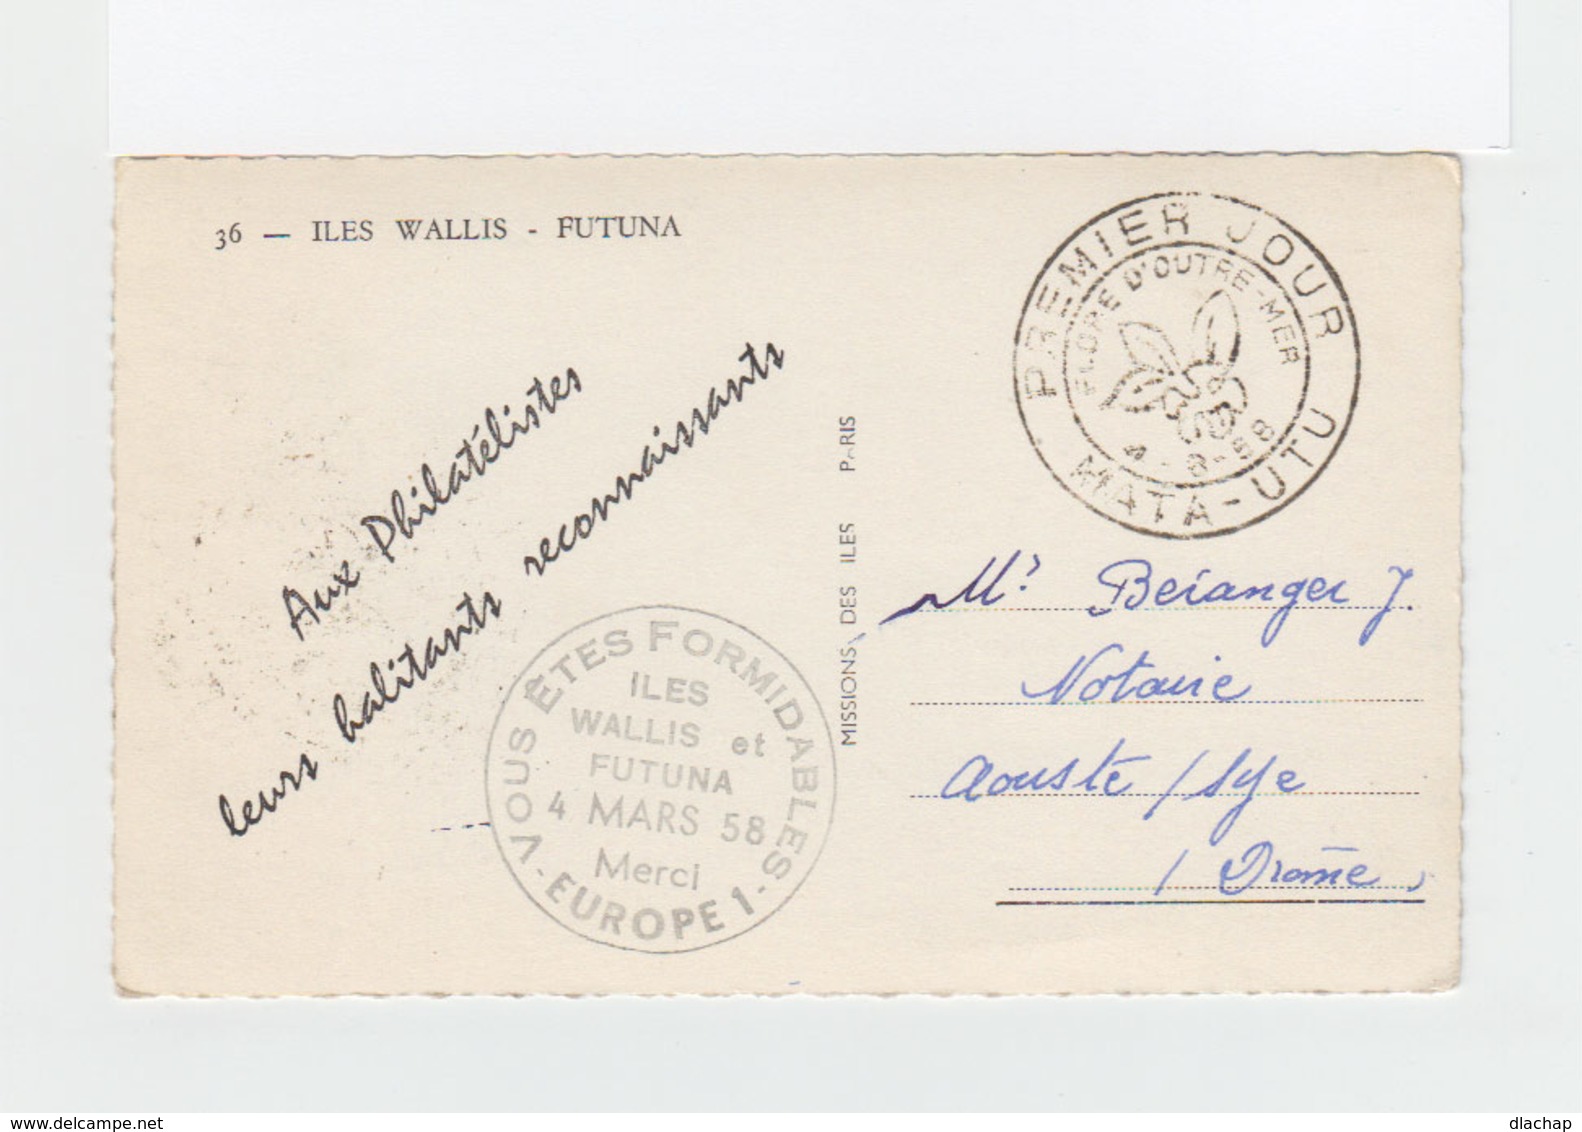 36 — ILES WALLIS - FUTUNA
Aux Philatélistes
leurs habitants reconnaissants
VOUS ÊTES FORMIDABLES
ILES
WALLIS et
FUTUNA
4 MARS 58
Merci
- EUROPE 1 -
MISSIONS DES ILES PARIS
PREMIER JOUR
FLORE D'OUTRE-MER
4-8-58
MATA-UTU
Mr Beranger J.
Notaire
Aouste / Sye
/ Drôme
dlachap
delcampe.net